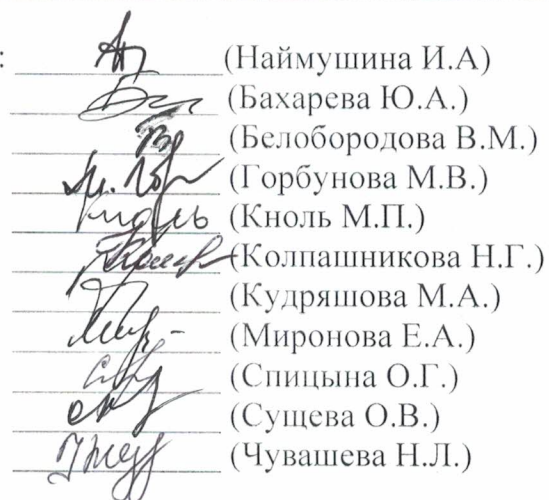 : (Наймушина И.А)
(Бахарева Ю.А.)
(Белобородова В.М.)
(Горбунова М.В.)
(Кноль М.П.)
(Колпашникова Н.Г.)
(Кудряшова М.А.)
(Миронова Е.А.)
(Спицына О.Г.)
(Сущева О.В.)
(Чувашева Н.Л.)